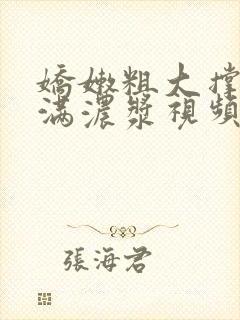 嬌嫩粗大撐
滿濃漿視頻
張海君